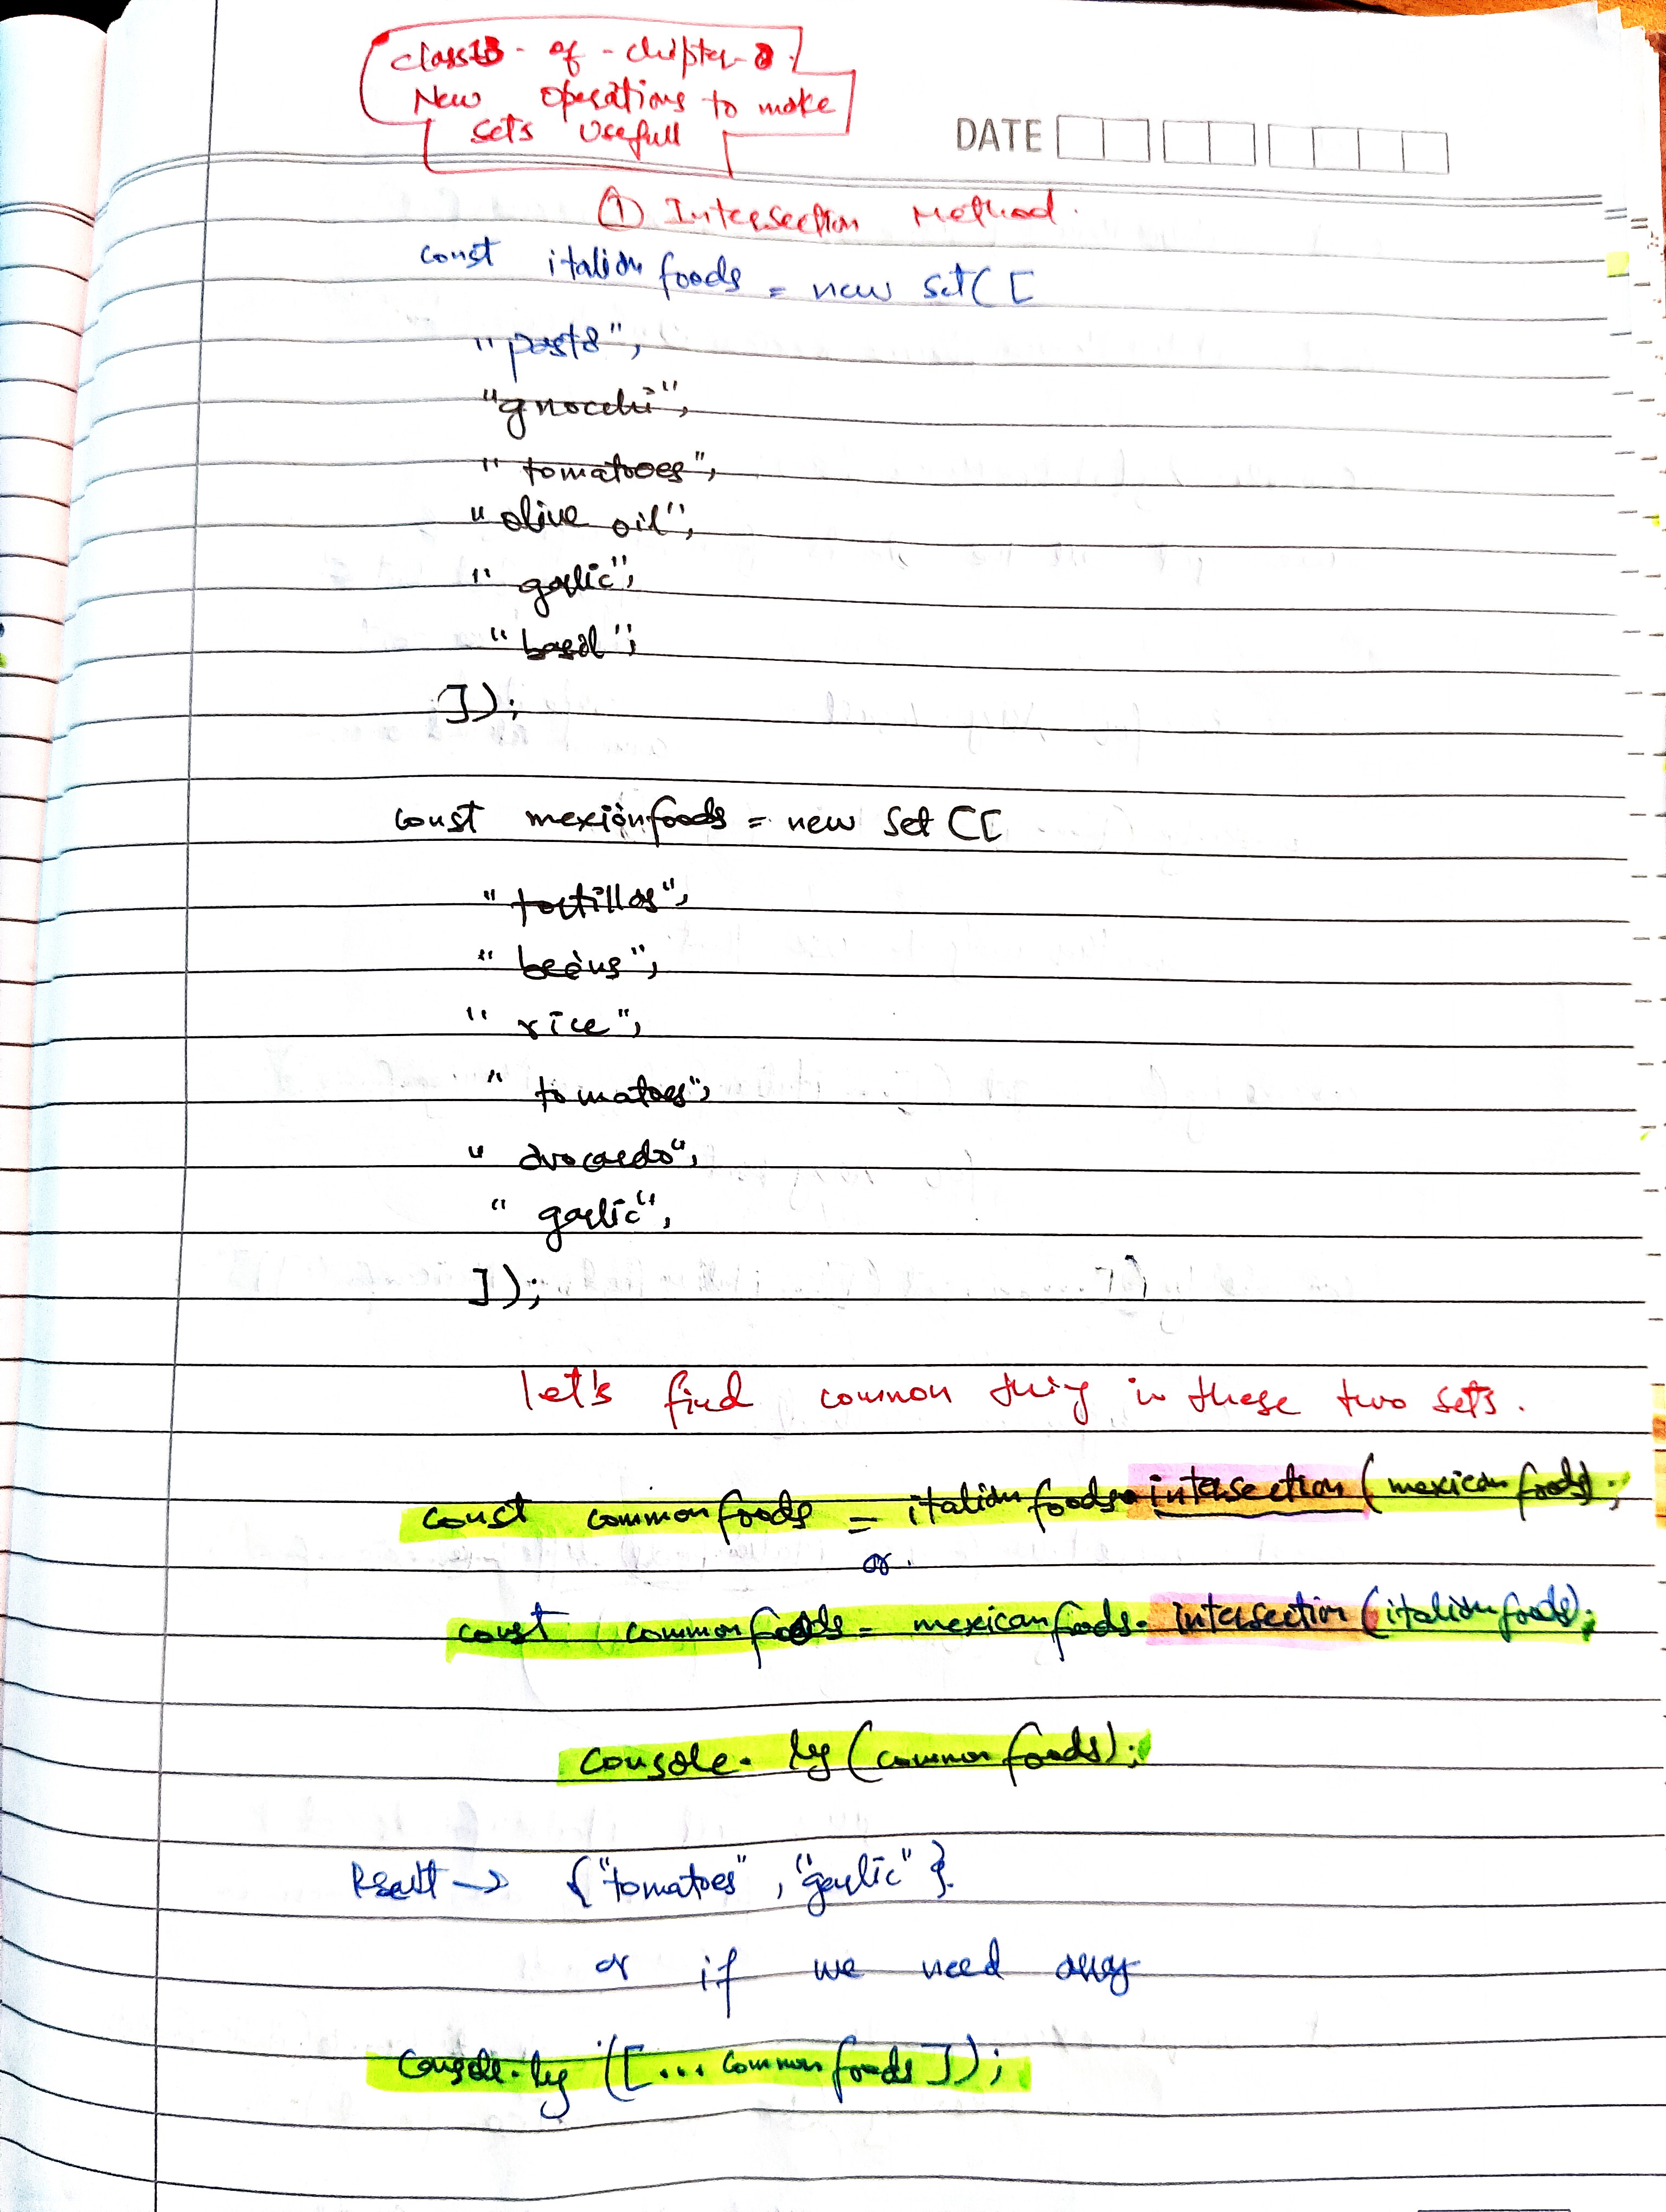 class13 - of - chapter - 8.
New operations to make
sets usefull
DATE
① Intersection Method.
const italian foods = new set([
"pasta",
"gnocchi",
"tomatoes",
"olive oil",
"garlic",
"basil",
]);
const mexicanfoods = new set([
"tortillas",
"beans",
"rice",
"tomatoes",
"avocardo",
"garlic",
]);
let's find common thing in these two sets.
const common foods = italian foods.intersection (mexican foods);
or.
const common foods = mexican foods.intersection (italian foods);
console.log (common foods);
Result → {"tomatoes", "garlic"}.
or if we need array
Console.log ([...common foods]);